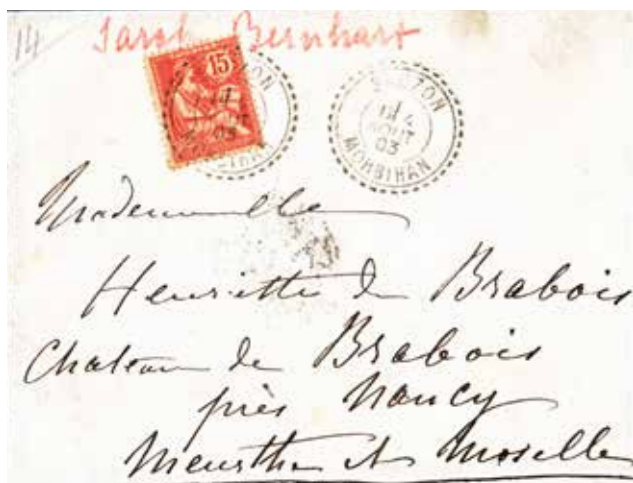 14
Sarah Bernhart
15
14
AOUT
03
MORBIHAN
Mademoiselle
Henriette de Brabois
Chateau de Brabois
près Nancy
Meurthe et Moselle